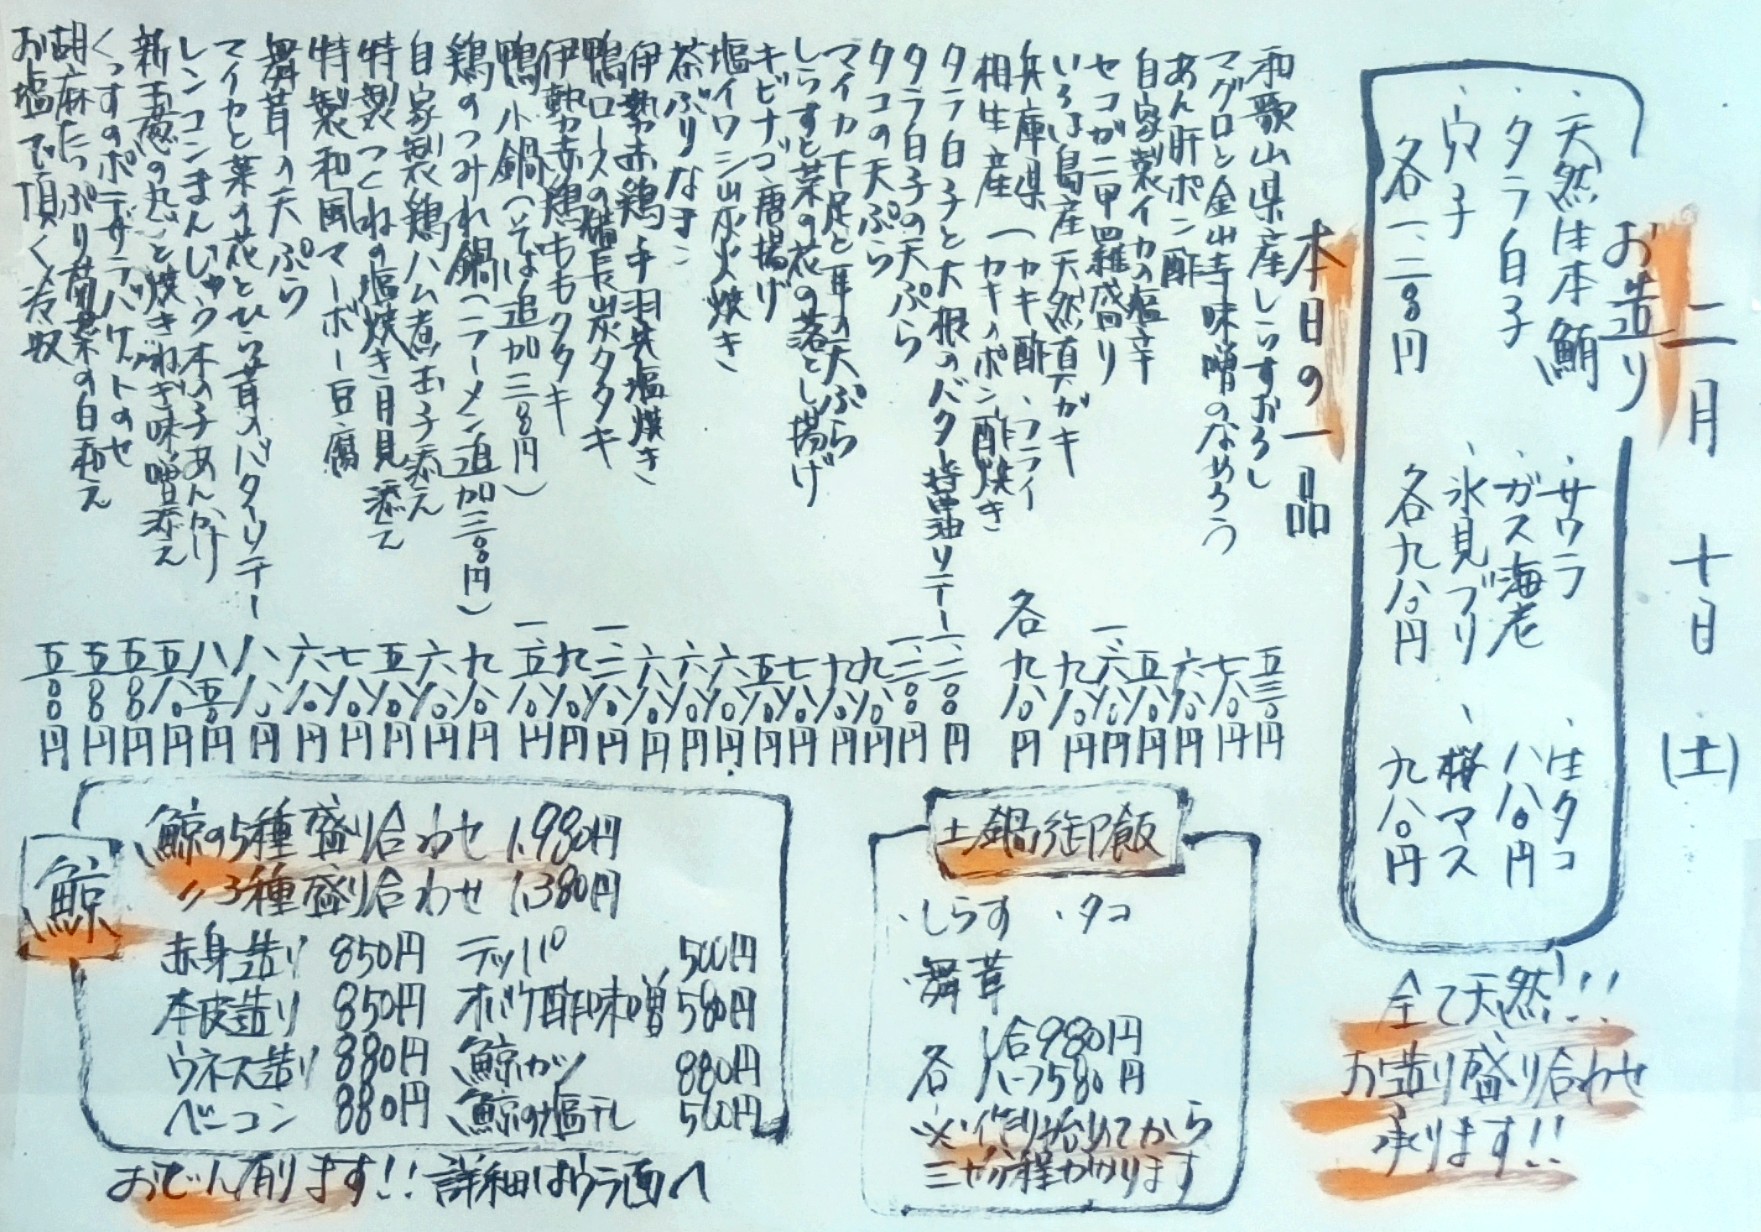 二月 十日 (土)
お造り
・天然生本鮪 ・サワラ ・生タコ
・タラ白子 ・ガス海老 八八〇円
・穴子 ・氷見ブリ ・桜マス
各一、二八〇円 各九八〇円 九八〇円
全て天然!!!
お造り盛り合わせ
承ります!!
本日の一品
和歌山県産しらすおろし 五三〇円
マグロと金山寺味噌のなめろう 七八〇円
あん肝ポン酢 六八〇円
自家製イカの塩辛 五八〇円
セコガニ甲羅盛り 一、六八〇円
いろは島産天然真ガキ 九八〇円
兵庫県 (カキ酢 、フライ
相生産 (カキのポン酢焼き 各九八〇円
タラ白子と大根のバター醤油ソテー 一、二八〇円
タラ白子の天ぷら 一、二八〇円
タコの天ぷら 九八〇円
マイカ下足と耳の天ぷら 九八〇円
しらすと菜の花の落とし揚げ 七八〇円
キビナゴ唐揚げ 五八〇円
塩イワシ炭火焼き 六八〇円
茶ぶりなまこ 六八〇円
伊勢赤鶏手羽先塩焼き 六八〇円
鴨ロースの備長炭タタキ 一、二八〇円
伊勢赤鶏ももタタキ 九八〇円
鴨小鍋(そば追加三八〇円) 一、五八〇円
鶏のつみれ鍋(ラーメン追加三〇〇円) 九八〇円
自家製鶏ハム煮玉子添え 六八〇円
特製つくねの塩焼き月見添え 五八〇円
特製和風マーボー豆腐 七八〇円
舞茸の天ぷら 六八〇円
マイカと菜の花とひら茸のバターソテー 八八〇円
レンコンまんじゅう木の子あんかけ 八五〇円
新玉葱の丸ごと焼きねぎ味噌添え 五八〇円
くっすのポテサラバケットのせ 五五〇円
胡麻たっぷり菊菜の白和え 五五〇円
お塩で頂く冷奴 五〇〇円
土鍋御飯
・しらす ・タコ
・舞茸
各 一合980円
ハーフ580円
※作り始めてから
三十分程かかります
鯨
鯨の5種盛り合わせ 1,980円
〃3種盛り合わせ 1,380円
赤身造り 850円 テッパ 500円
本皮造り 850円 オバケ酢味噌 580円
ウネス造り 880円 鯨カツ 880円
ベーコン 880円 鯨の塩干し 500円
おでん有ります!!詳細はウラ面へ